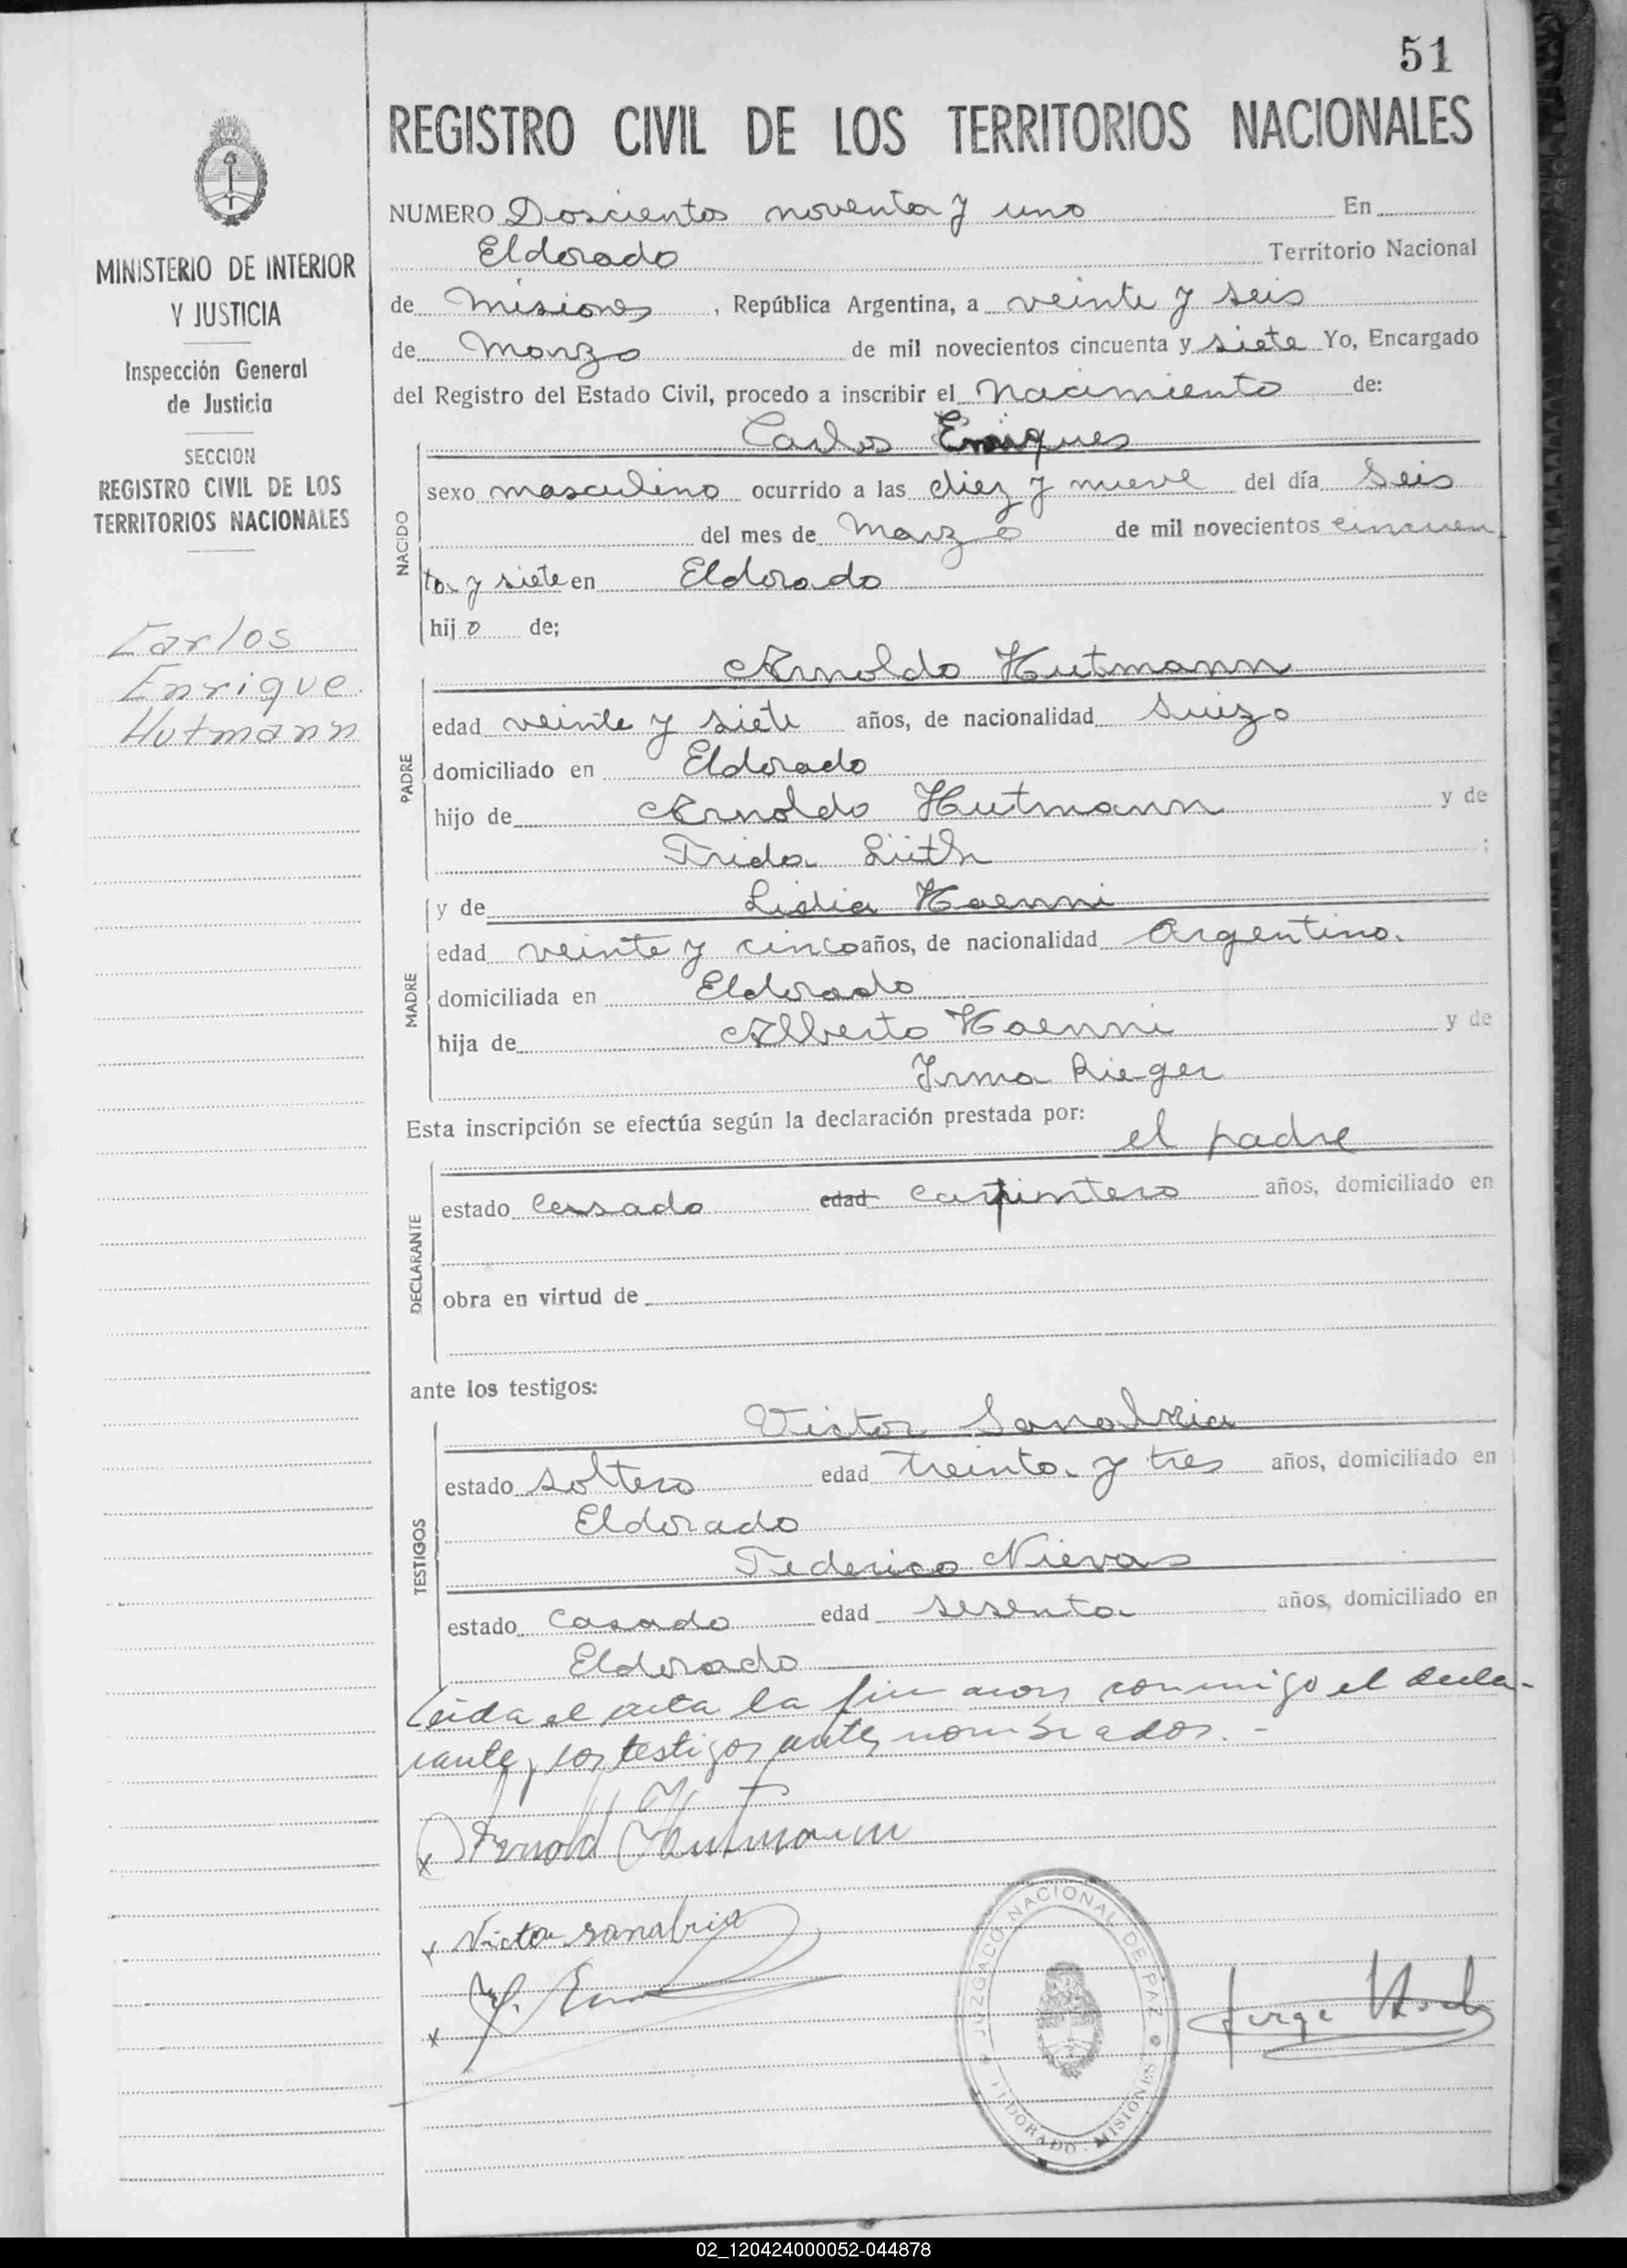 51
REGISTRO CIVIL DE LOS TERRITORIOS NACIONALES
MINISTERIO DE INTERIOR
Y JUSTICIA
Inspección General
de Justicia
SECCION
REGISTRO CIVIL DE LOS
TERRITORIOS NACIONALES
Carlos
Enrique
Hutmann
NUMERO Doscientos noventa y uno En
Eldorado Territorio Nacional
de Misiones, República Argentina, a veinte y seis
de Marzo de mil novecientos cincuenta y siete Yo, Encargado
del Registro del Estado Civil, procedo a inscribir el Nacimiento de:
Carlos
NACIDO
sexo masculino ocurrido a las diez y nueve del día Seis
del mes de Marzo de mil novecientos cincuen
ta y siete en Eldorado
hijo de;
Arnoldo Hutmann
PADRE
edad veinte y siete años, de nacionalidad Suizo
domiciliado en Eldorado
hijo de Arnoldo Hutmann y de
Frida Lüth ;
y de Lidia Haenni
MADRE
edad veinte y cinco años, de nacionalidad Argentino.
domiciliada en Eldorado
hija de Alberto Haenni y de
Irma Rieger
Esta inscripción se efectúa según la declaración prestada por:
el padre
DECLARANTE
estado Casado edad carpintero años, domiciliado en
obra en virtud de
ante los testigos:
Victor Sanabria
TESTIGOS
estado soltero edad treinta y tres años, domiciliado en
Eldorado
Federico Nievas
estado Casado edad sesenta años, domiciliado en
Eldorado
Leida el acta la firmaron conmigo el decla-
rante y los testigos antes nombrados. -
x Arnold Hutmann
x Victor sanabria
x
JUZGADO NACIONAL DE PAZ
ELDORADO - MISIONES
Jorge
02_120424000052-044878